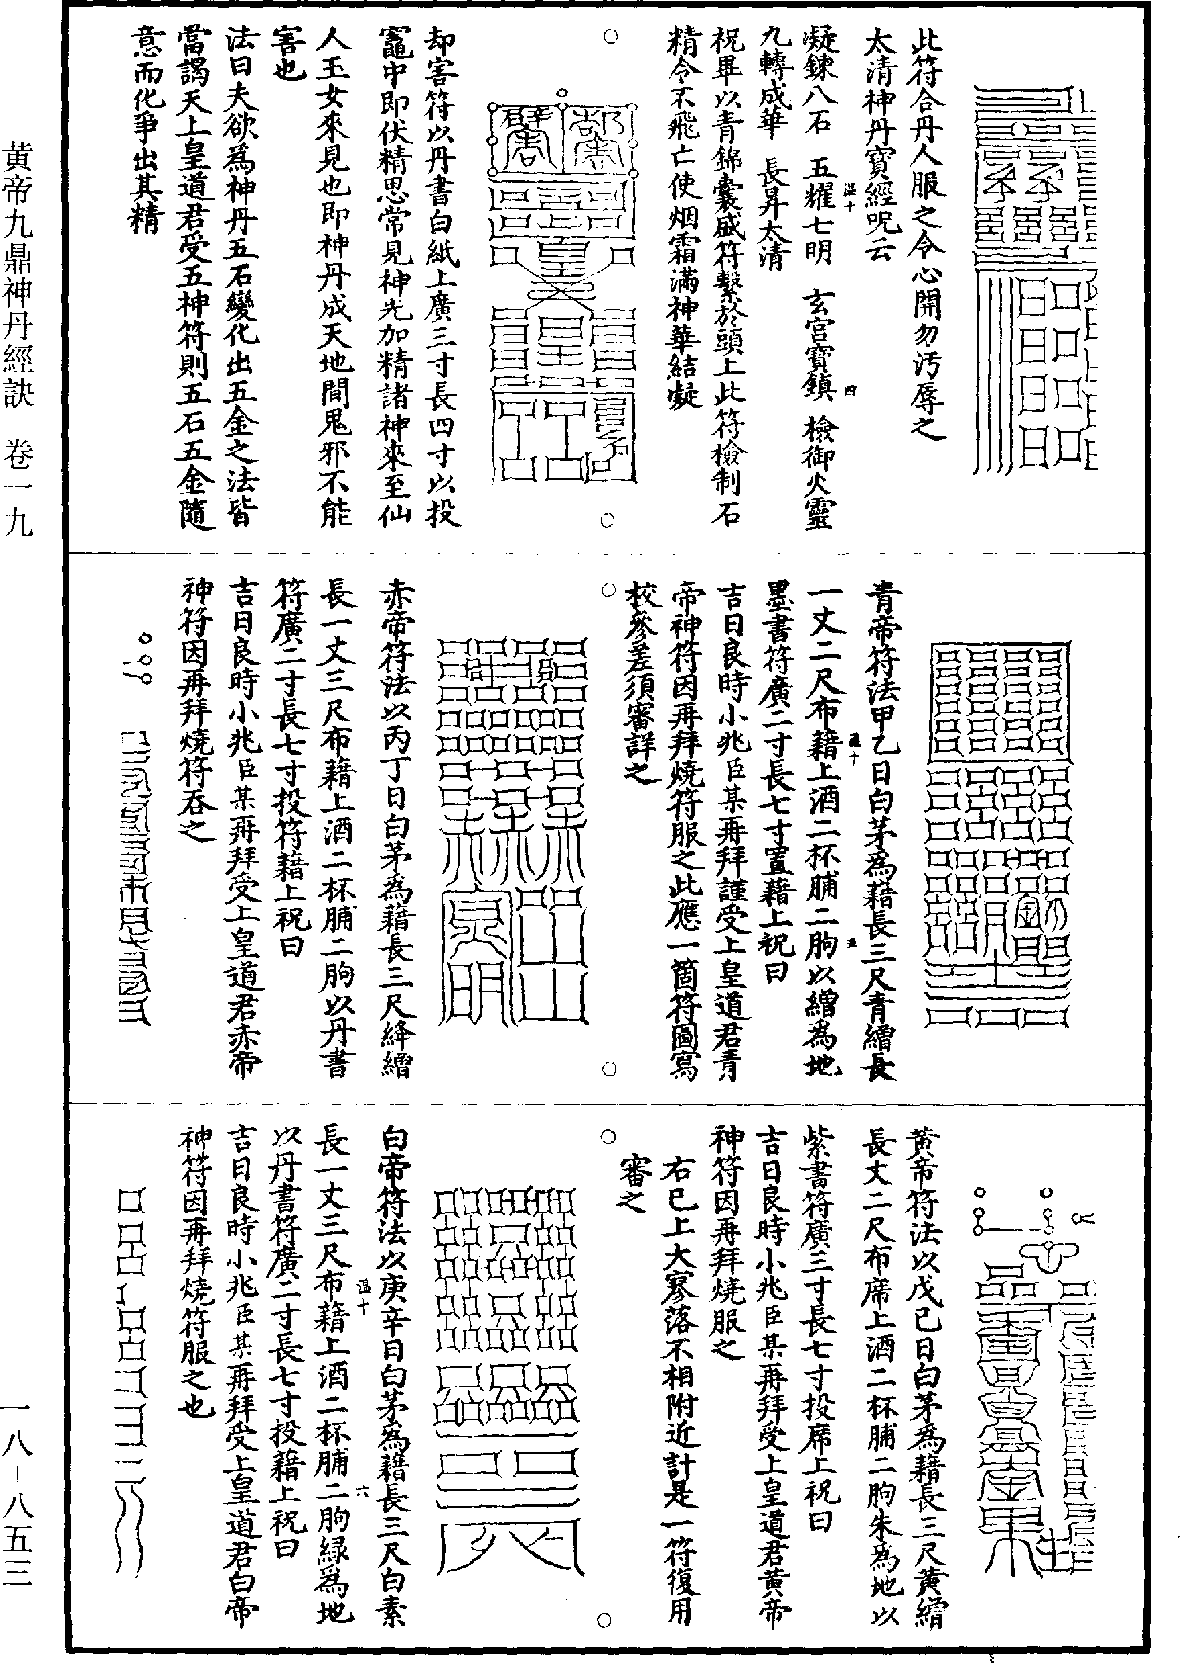 此符合丹人服之令心開勿汚辱之
太清神丹寶經呪云
凝錬八石　五耀七明　玄宮寶鎮　檢御火靈
九轉成華　長昇太清
祝畢以青錦囊盛符繫於頭上此符檢制石
精令不飛亡使烟霜滿神華結凝
却害符以丹書白紙上廣三寸長四寸以投
竈中即伏精思常見神光加精諸神來至仙
人玉女來見也即神丹成天地間鬼邪不能
害也
法曰夫欲為神丹五石變化出五金之法皆
當謁天上皇道君受五神符則五石五金隨
意而化爭出其精
青帝符法甲乙日白茅為藉長三尺青繒長
一丈二尺布藉上酒二杯脯二朐以繒為地
墨書符廣二寸長七寸置藉上祝曰
吉日良時小兆臣某再拜謹受上皇道君青
帝神符因再拜燒符服之此應一箇符圖寫
校參差須審詳之
赤帝符法以丙丁日白茅為藉長三尺絳繒
長一丈三尺布藉上酒二杯脯二朐以丹書
符廣二寸長七寸投符藉上祝曰
吉日良時小兆臣某再拜受上皇道君赤帝
神符因再拜燒符吞之
黃帝符法以戊巳日白茅為藉長三尺黃繒
長丈二尺布席上酒二杯脯二朐朱為地以
紫書符廣三寸長七寸投席上祝曰
吉日良時小兆臣某再拜受上皇道君黃帝
神符因再拜燒服之
右巳上大寥落不相附近計是一符復用
審之
白帝符法以庚辛日白茅為藉長三尺白素
長一丈三尺布藉上酒二杯脯二朐緑為地
以丹書符廣二寸長七寸投藉上祝曰
吉日良時小兆臣某再拜受上皇道君白帝
神符因再拜燒符服之也
黃帝九鼎神丹經訣　卷一九
一八－八五三